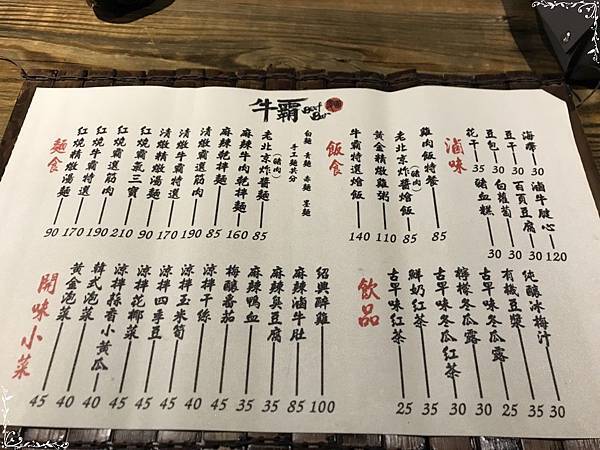 牛霸
Beef Bar
麵食
紅燒精燉湯麵 90
紅燒牛霸特選 170
紅燒霸選筋肉 190
紅燒霸氣三寶 210
清燉精燉湯麵 90
清燉牛霸特選 170
清燉霸選筋肉 190
麻辣乾拌麵 85
麻辣牛肉乾拌麵 160
老北京炸醬麵(豬肉) 85
手工麵共分
白麵 青麵 赤麵 墨麵
飯食
牛霸特選燴飯 140
黃金精燉雞粥 110
老北京炸醬燴飯(豬肉) 85
雞肉飯特餐 85
滷味
花干 35
豆包 30
豆干 30
海帶 30
豬血糕 30
白蘿蔔 30
百頁豆腐 30
滷牛腱心 120
開味小菜
黃金泡菜 45
韓式泡菜 40
涼拌蒜香小黃瓜 40
涼拌花椰菜 45
涼拌四季豆 45
涼拌玉米筍 45
涼拌干絲 40
梅釀番茄 45
麻辣鴨血 35
麻辣臭豆腐 35
麻辣滷牛肚 85
紹興醉雞 100
飲品
古早味紅茶 25
鮮奶紅茶 35
檸檬冬瓜紅茶 30
古早味冬瓜露 30
有機豆漿 25
純釀冰梅汁 35
30